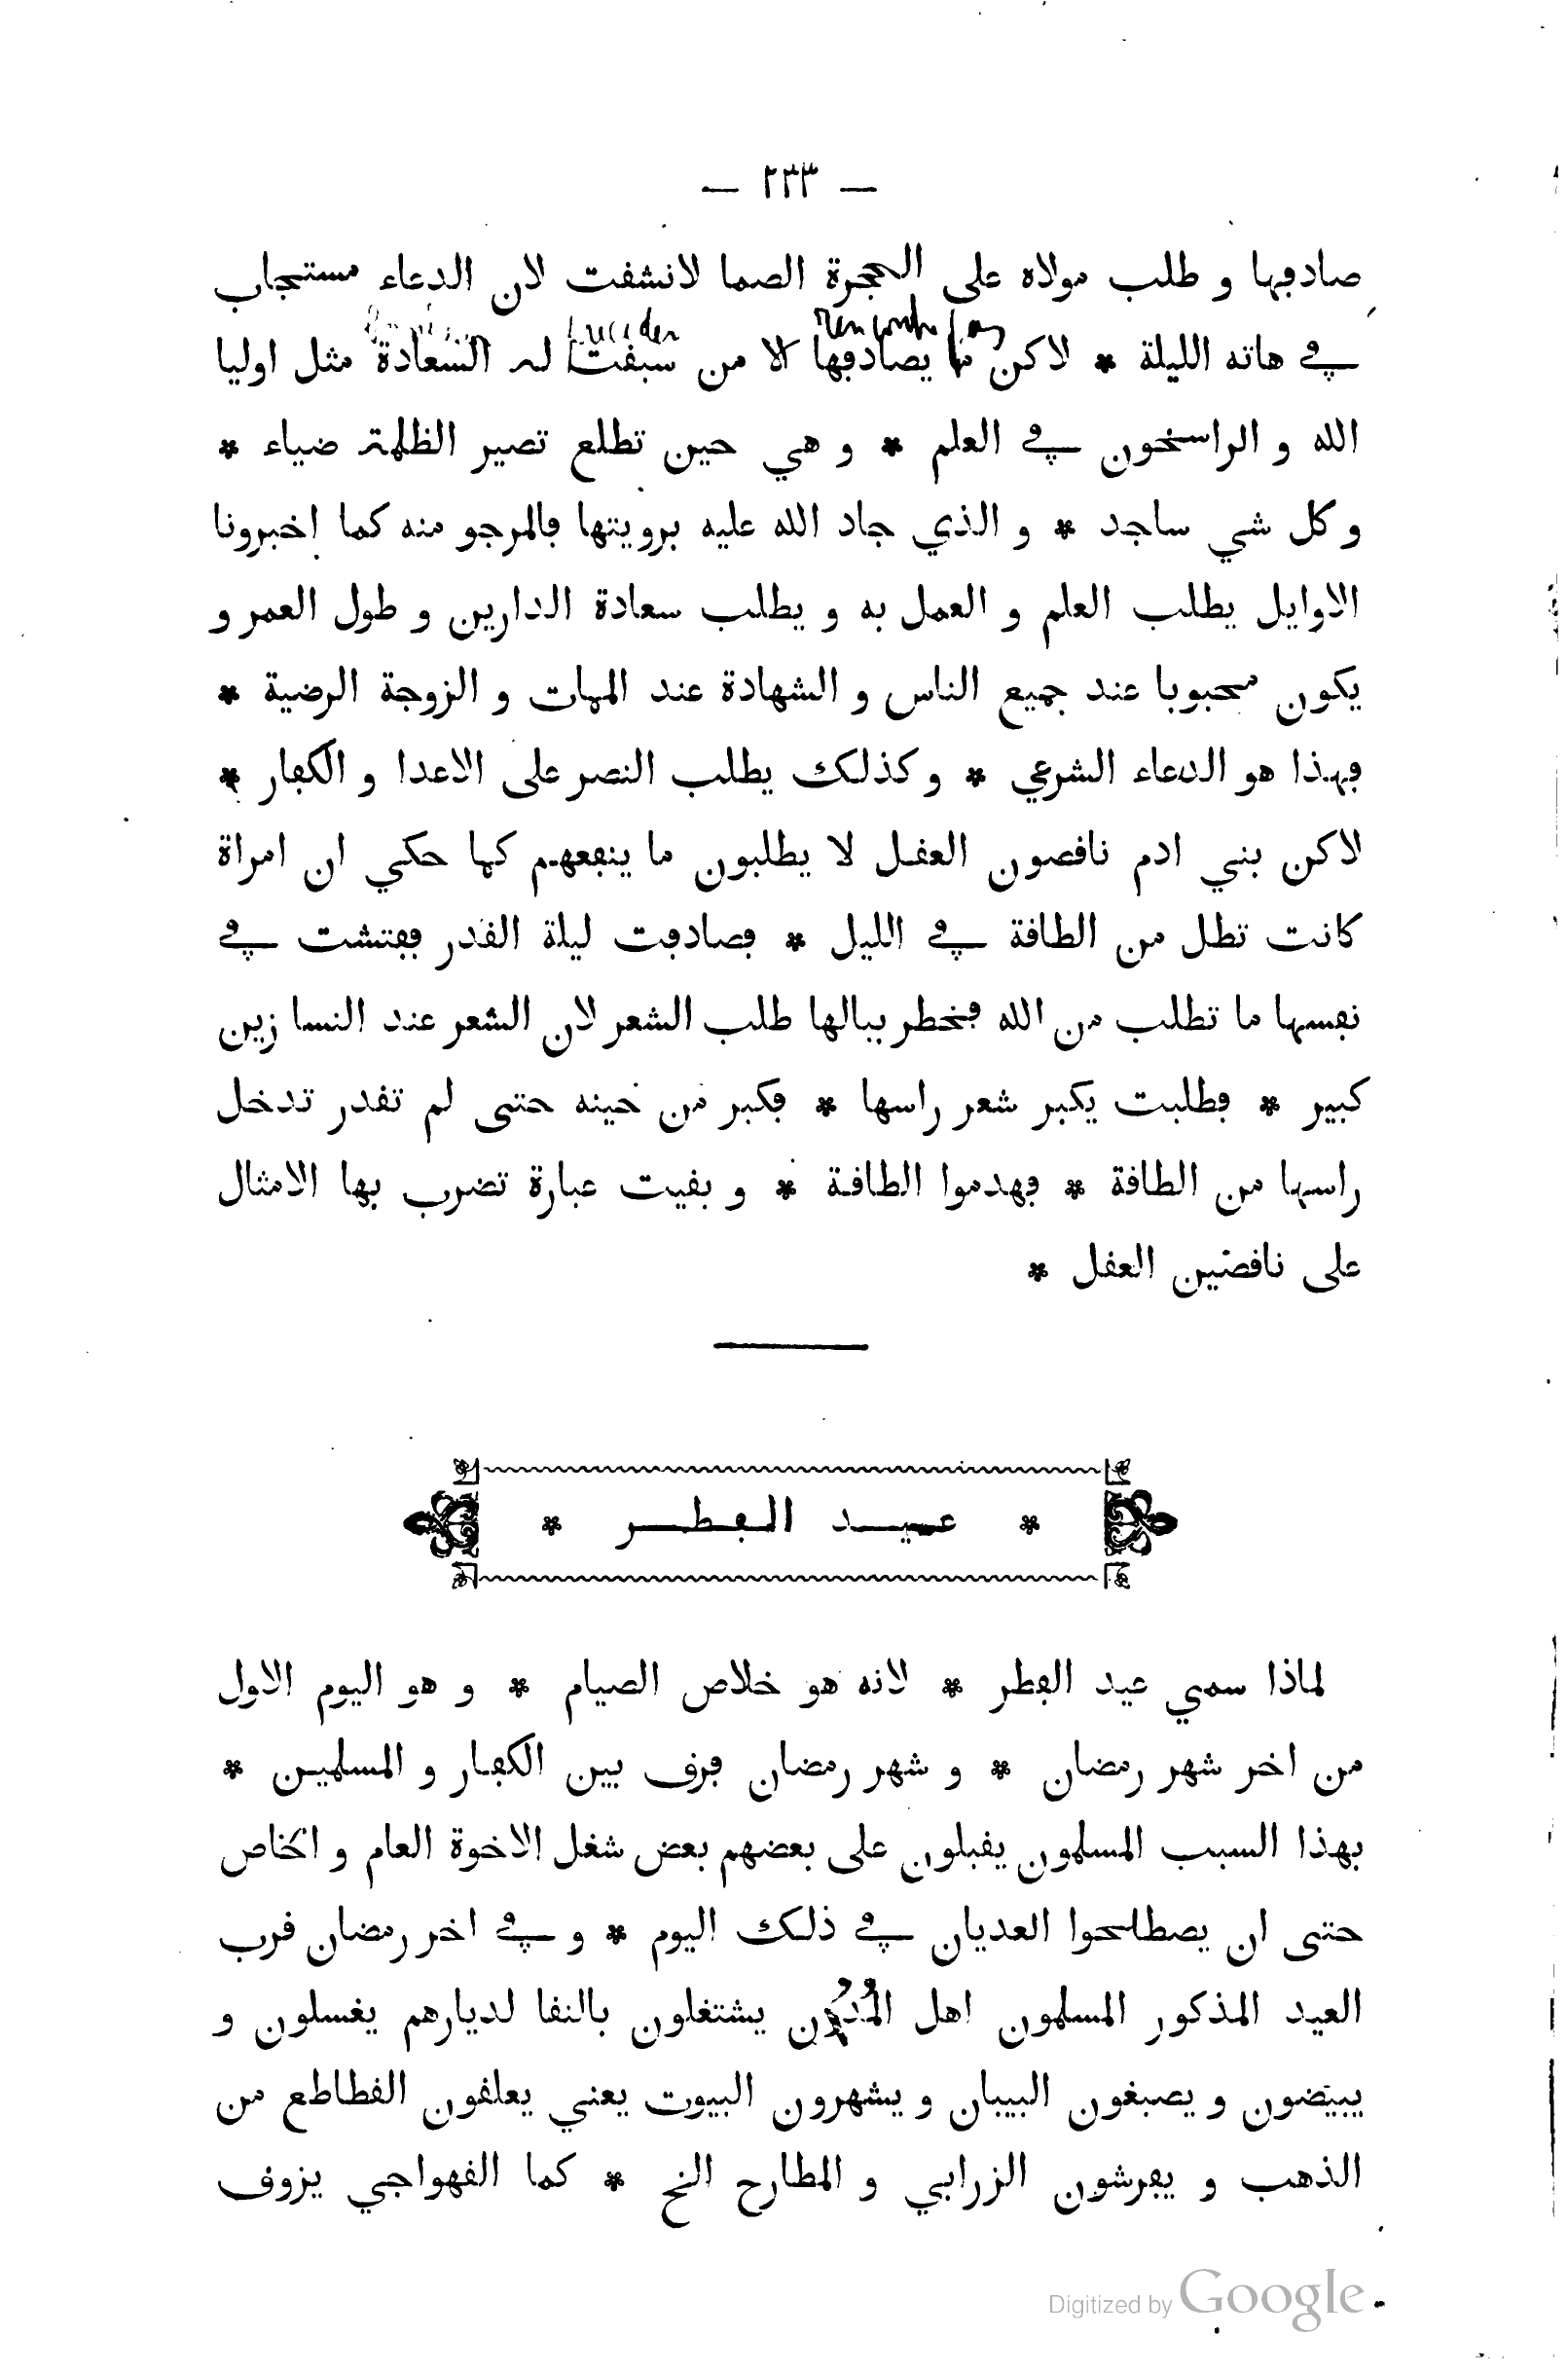 — ٢٣٣ —
صادفها و طلب مولاه على الحجرة الصما لانشقت لان الدعاء مستجاب
في هاته الليلة * لاكن ما يصادفها الا من سبقت له السعادة مثل اوليا
الله و الراسخون في العلم * و هي حين تطلع تصير الظلمة ضياء *
و كل شي ساجد * و الذي جاد الله عليه برويتها فالمرجو منه كما اخبرونا
الاوايل يطلب العلم و العمل به و يطلب سعادة الدارين و طول العمر و
يكون محبوبا عند جميع الناس و الشهادة عند الممات و الزوجة الرضية *
فهذا هو الدعاء الشرعي * و كذلك يطلب النصر على الاعدا و الكفار *
لاكن بني ادم ناقصون العقل لا يطلبون ما ينفعهم كما حكي ان امراة
كانت تطل من الطاقة في الليل * فصادفت ليلة القدر ففتشت في
نفسها ما تطلب من الله فخطر ببالها طلب الشعر لان الشعر عند النسا زين
كبير * فطلبت يكبر شعر راسها * فكبر من حينه حتى لم تقدر تدخل
راسها من الطاقة * فهدموا الطاقة * و بقيت عبارة تضرب بها الامثال
على ناقصين العقل *
* عيد الفطر *
لماذا سمي عيد الفطر * لانه هو خلاص الصيام * و هو اليوم الاول
من اخر شهر رمضان * و شهر رمضان فرق بين الكفار و المسلمين *
بهذا السبب المسلمون يقبلون على بعضهم بعض شغل الاخوة العام و الخاص
حتى ان يصطلحوا العديان في ذلك اليوم * و في اخر رمضان قرب
العيد المذكور المسلمون اهل المُدُن يشتغلون بالنقا لديارهم يغسلون و
يبيضون و يصبغون البيبان و يشهرون البيوت يعني يعلقون القطاطع من
الذهب و يفرشون الزرابي و المطارح الخ * كما القهواجي يزوق
Digitized by Google